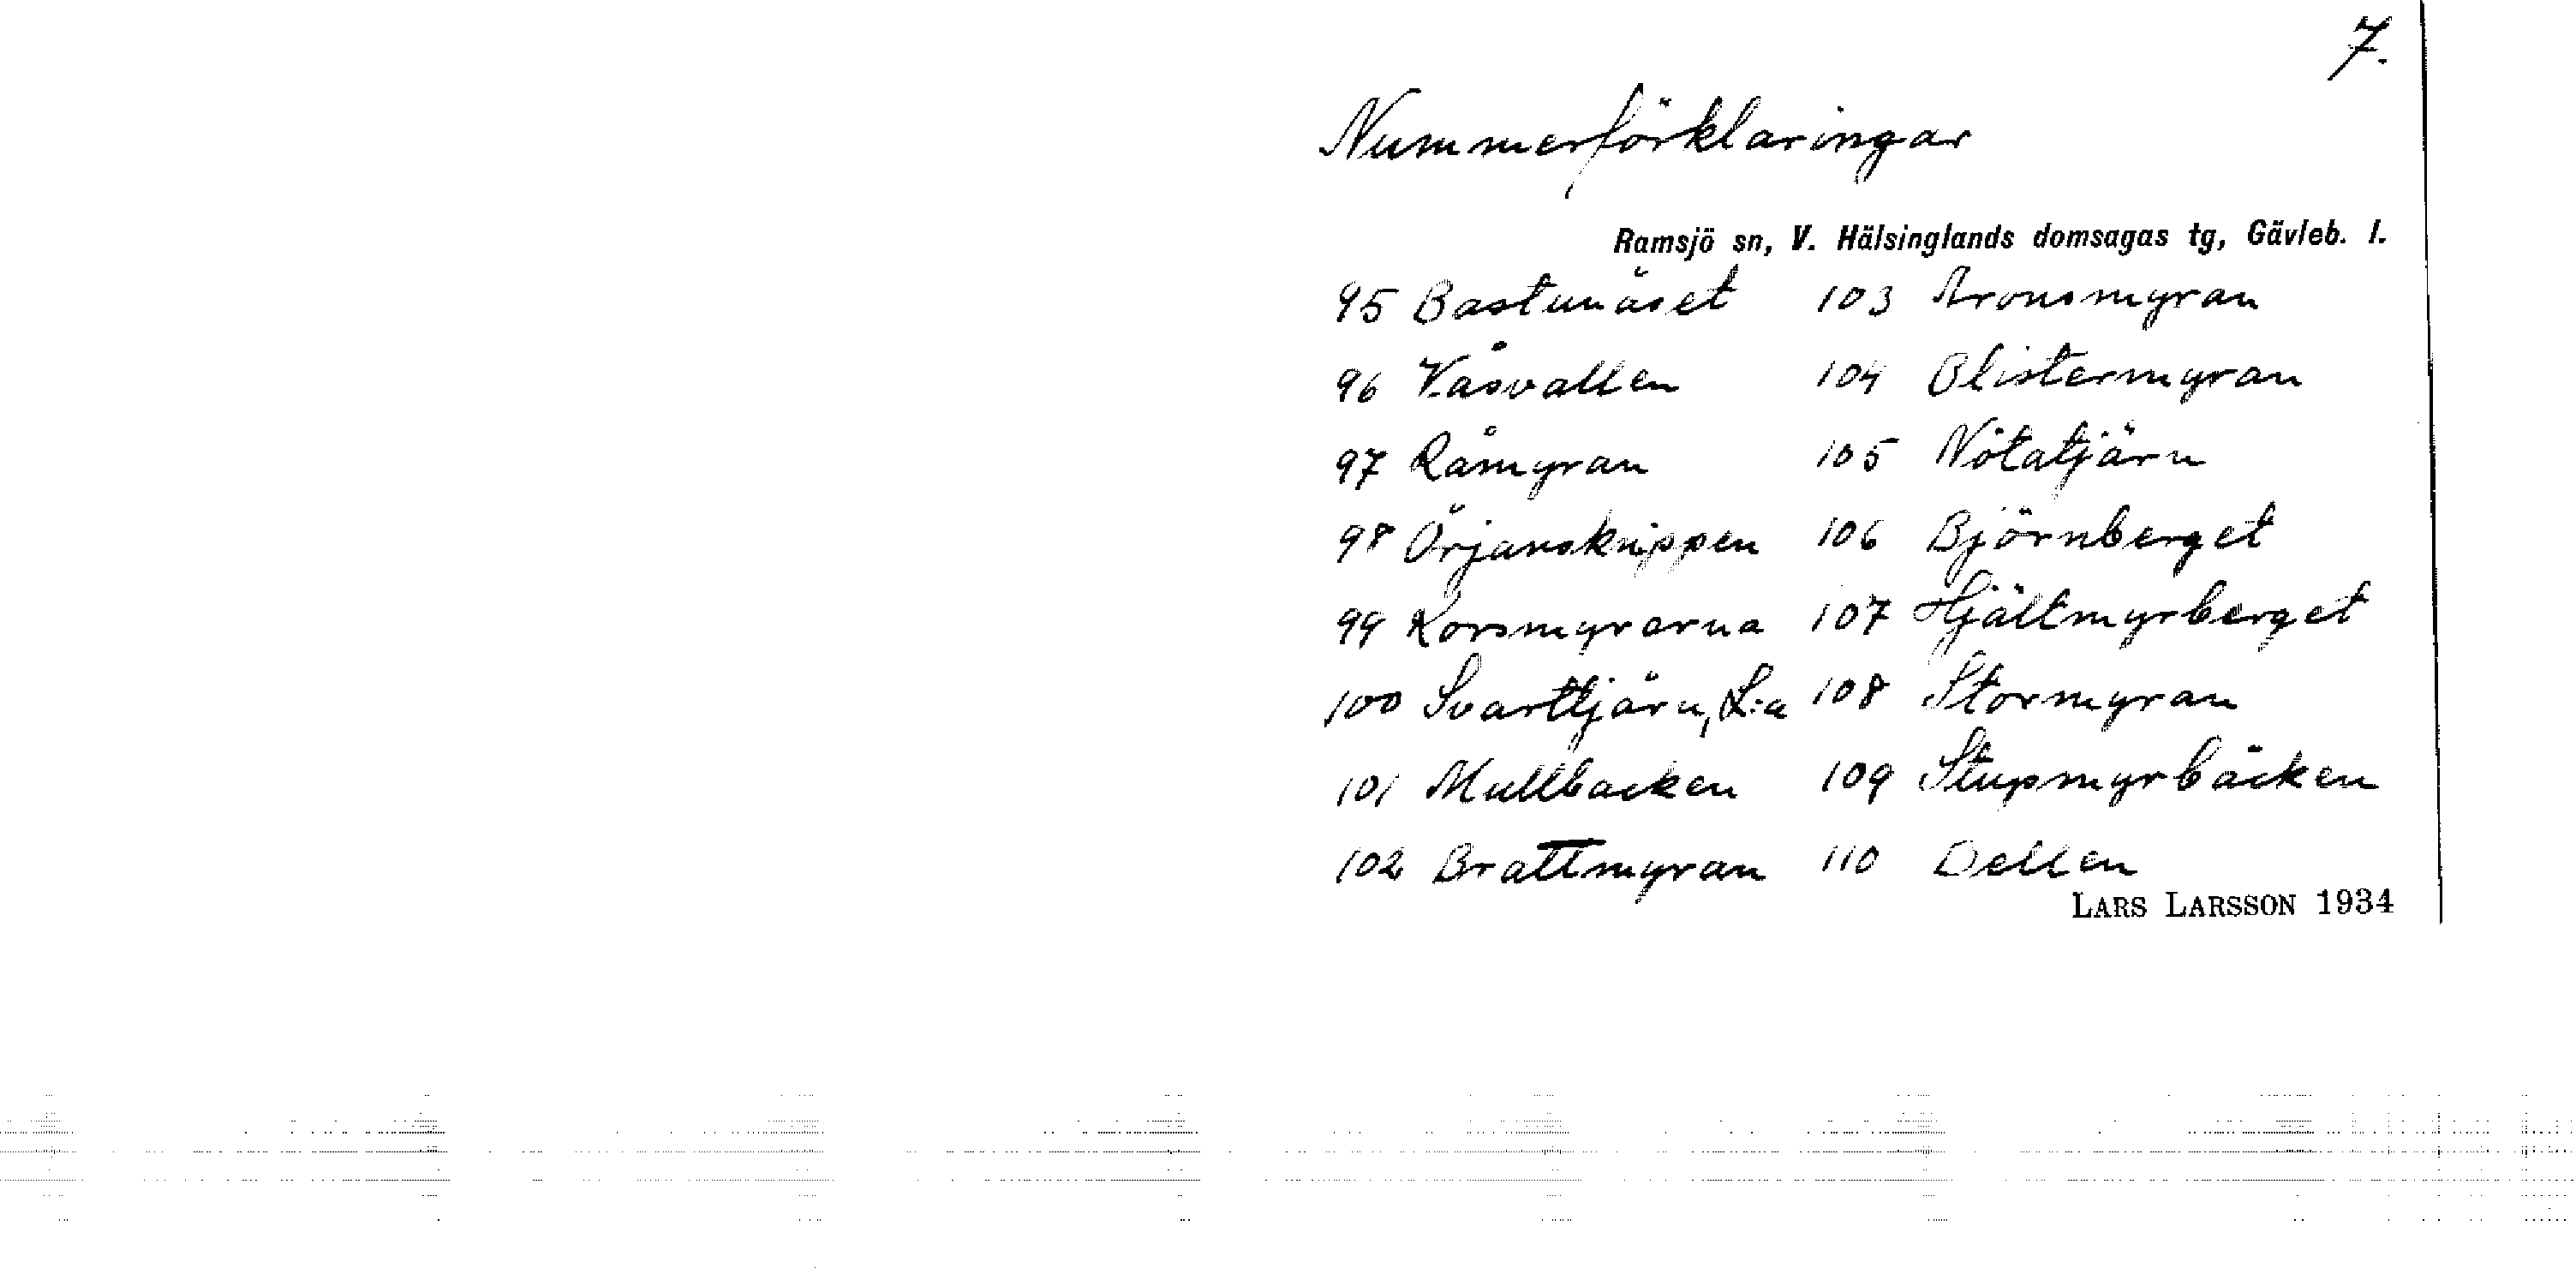 7.
Nummerförklaringar
Ramsjö sn, V. Hälsinglands domsagas tg, Gävleb. l.
95 Bastunäset 103 Aronsmyran
96 Våsvallen 104 Blistermyran
97 Råmyran 105 Nötatjärn
98 Örjansknippen 106 Björnberget
99 Korsmyrarna 107 Hjältmyrberget
100 Svarttjärn, L:a 108 Stormyran
101 Mullbacken 109 Stupmyrbäcken
102 Brattmyran 110 Dellen
LARS LARSSON 1934